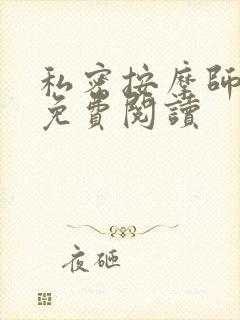 私密按摩師
免費閱讀
夜砸